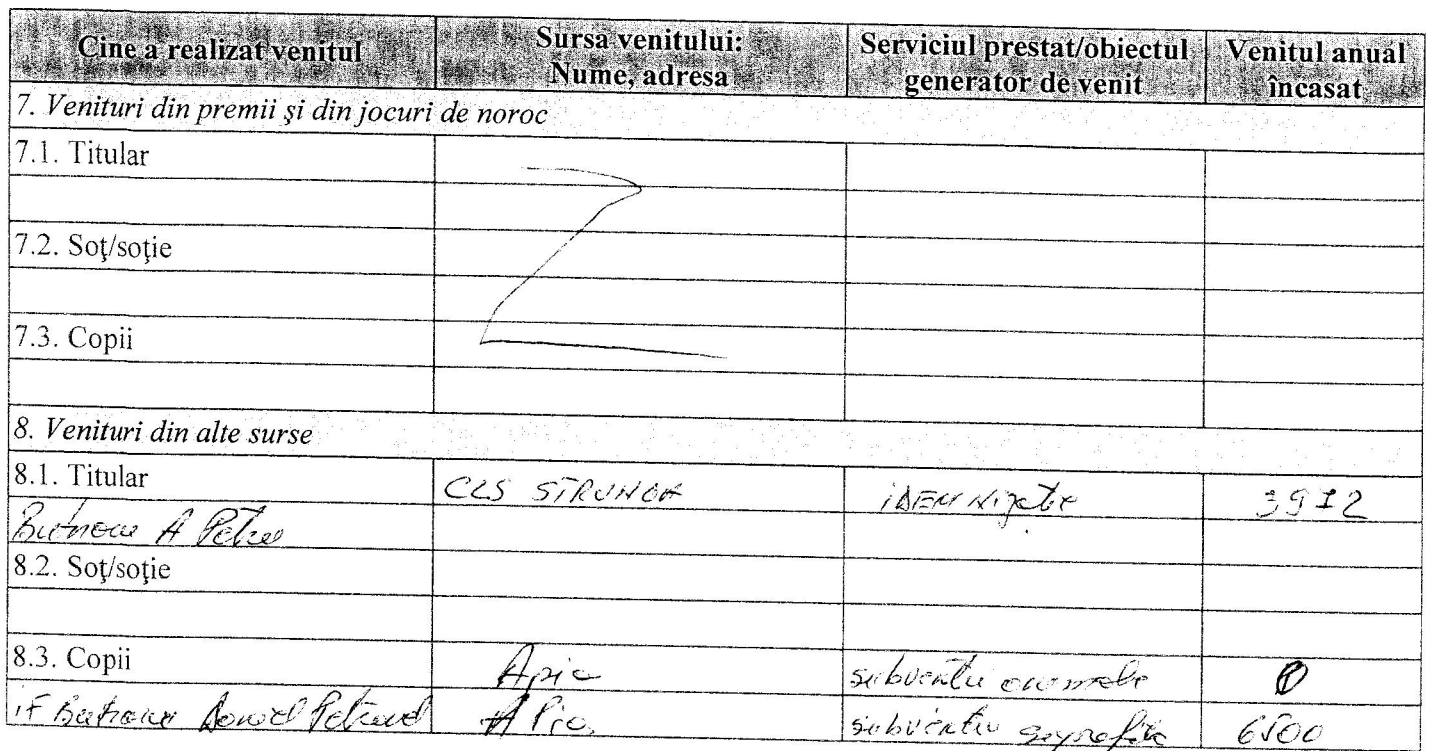 Cine a realizat venitul
Sursa venitului:
Nume, adresa
Serviciul prestat/obiectul
generator de venit
Venitul anual
încasat
7. Venituri din premii şi din jocuri de noroc
7.1. Titular
7.2. Soţ/soţie
7.3. Copii
8. Venituri din alte surse
8.1. Titular CLS STRUNGA 3912
A Petru
8.2. Soţ/soţie
8.3. Copii Apia subventii animale 0
IF Daniel Apia subventii 6500